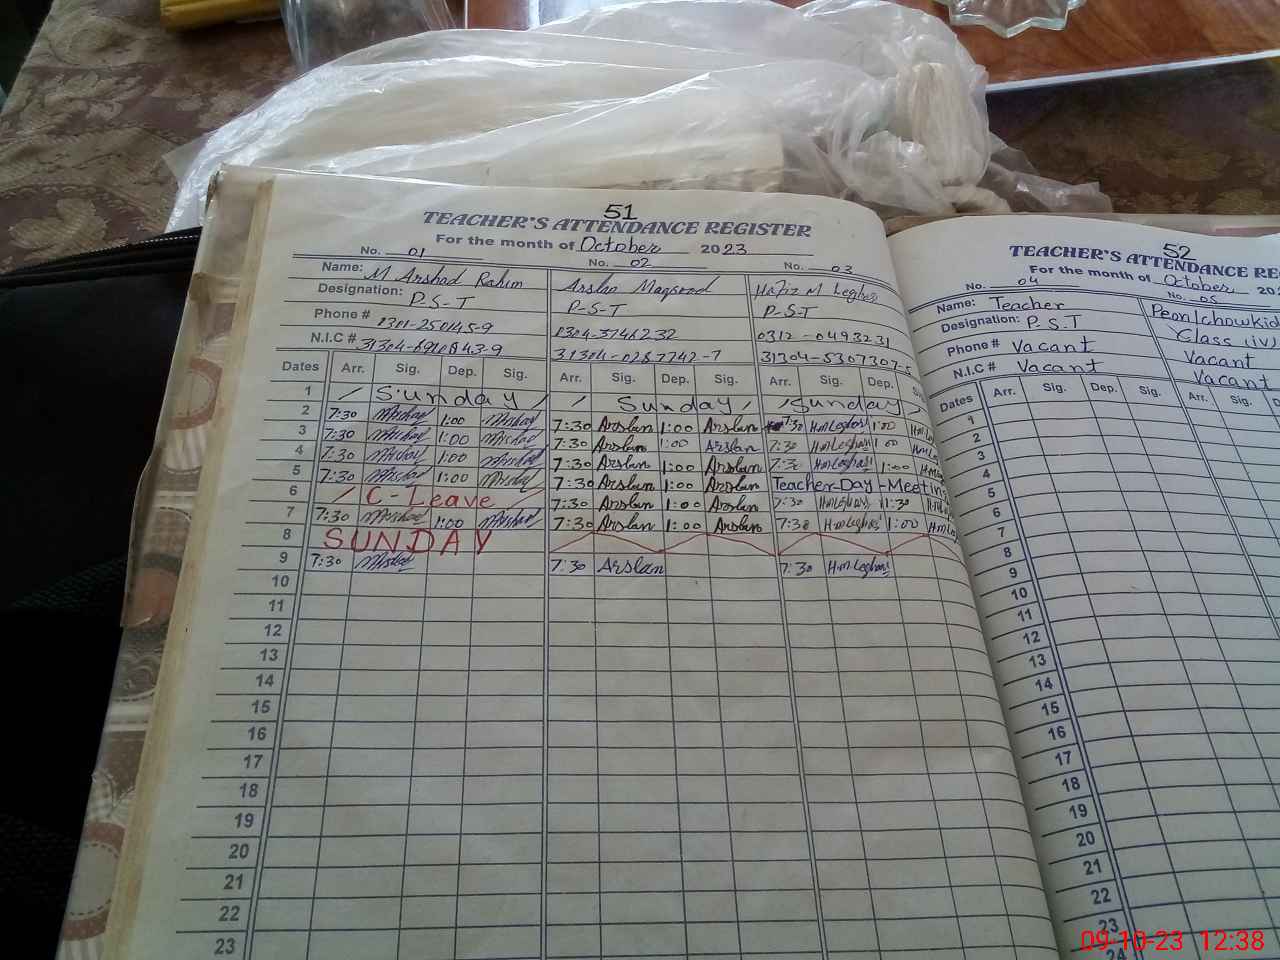 51
TEACHER'S ATTENDANCE REGISTER
For the month of October 2023
No. 01 No. 02 No. 03
Name: M Arshad Rahim Arslan Maqsood Hafiz M Leghari
Designation: P-S-T P-S-T P-S-T
Phone # 0301-250145-9 0304-3746232 0312-0493231
N.I.C # 31304-0287742-7 31304-5307307-5
Dates Arr. Sig. Dep. Sig. Arr. Sig. Dep. Sig. Arr. Sig. Dep. Sig.
1 Sunday Sunday Sunday
2 7:30 Arshad 1:00 Arshad 7:30 Arslan 1:00 Arslan 7:30 H.m Leghari 1:00
3 7:30 Arshad 1:00 Arshad 7:30 Arslan 1:00 Arslan 7:30 H.m Leghari 1:00
4 7:30 Arshad 1:00 Arshad 7:30 Arslan 1:00 Arslan 7:30 H.m Leghari 1:00
5 7:30 Arshad 1:00 Arshad 7:30 Arslan 1:00 Arslan Teacher-Day-Meeting
6 C-Leave 7:30 Arslan 1:00 Arslan 7:30 H.m Leghari 11:30
7 7:30 Arshad 1:00 Arshad 7:30 Arslan 1:00 Arslan 7:30 H.m Leghari 1:00
8 SUNDAY
9 7:30 Arshad 7:30 Arslan 7:30 H.m Leghari
10
11
12
13
14
15
16
17
18
19
20
21
22
23
52
TEACHER'S ATTENDANCE RE
For the month of October 20
No. 04 No. 05
Name: Teacher Peon/chowkid
Designation: P-S-T Class (iv)
Phone # Vacant Vacant
N.I.C # Vacant Vacant
Dates Arr. Sig. Dep. Sig. Arr. Sig. D
1
2
3
4
5
6
7
8
9
10
11
12
13
14
15
16
17
18
19
20
21
22
23
24
09-10-23 12:38